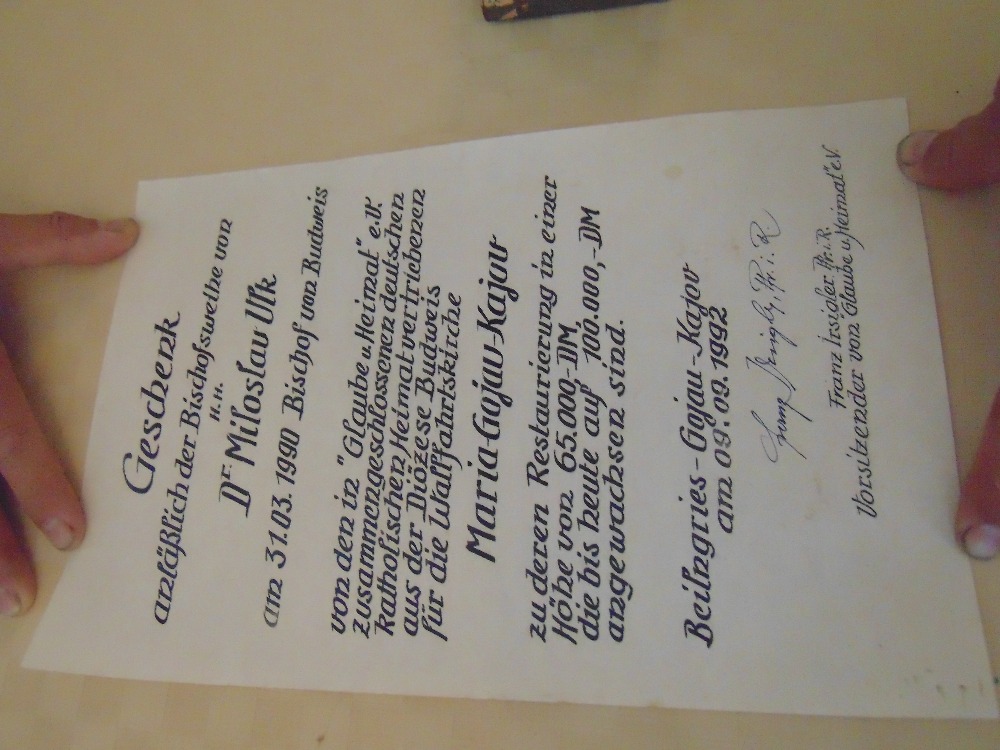 Geschenk
anläßlich der Bischofsweihe von
H.H.
Dr. Miloslav Vlk
am 31.03.1990 Bischof von Budweis
von den in "Glaube u. Heimat" e.V.
zusammengeschlossenen deutschen
katholischen Heimatvertriebenen
aus der Diözese Budweis
für die Wallfahrtskirche
Maria-Gojau-Kajov
zu deren Restaurierung in einer
Höhe von 65.000-DM
die bis heute auf 100.000,-DM
angewachsen sind.
Beilngries-Gojau-Kajov
am 09.09.1992
Franz Irsigler, Pfr. i. R.
Franz Irsigler Pfr. i. R.
Vorsitzender von Glaube u. Heimat" e.V.